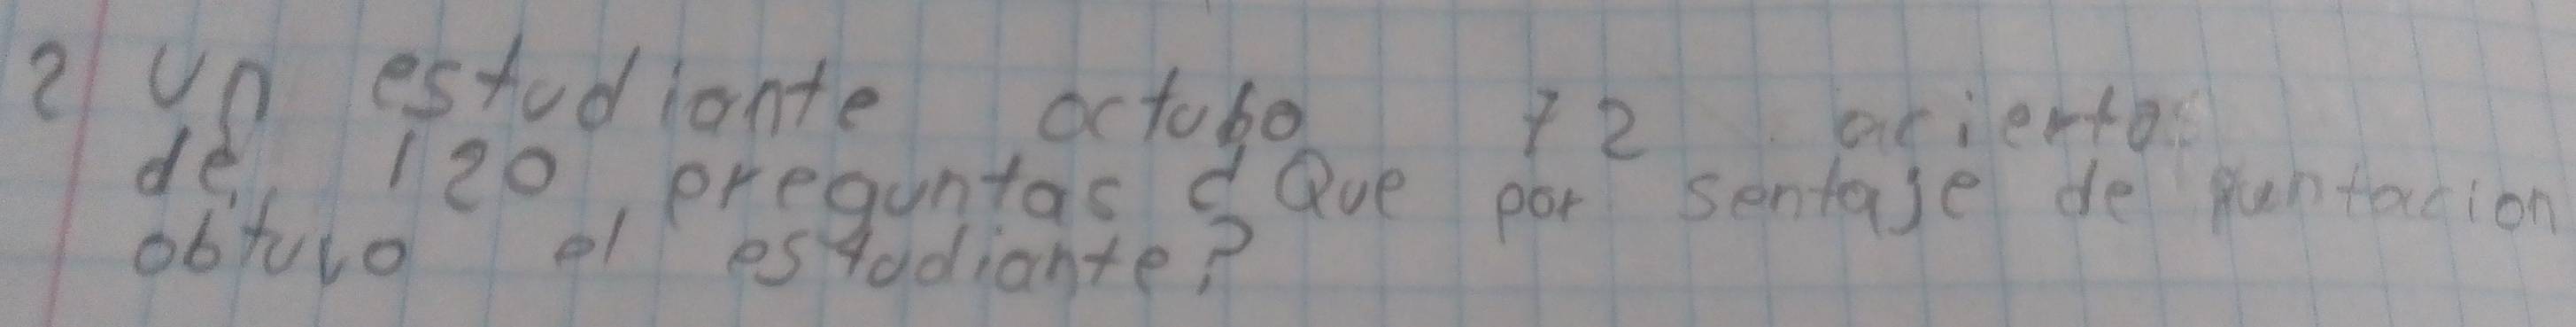 2 Un estudiante octubo 72 aciertos
de 120 preguntas ¿Que por sentaje de puntacion
obtuvo el estudiante?